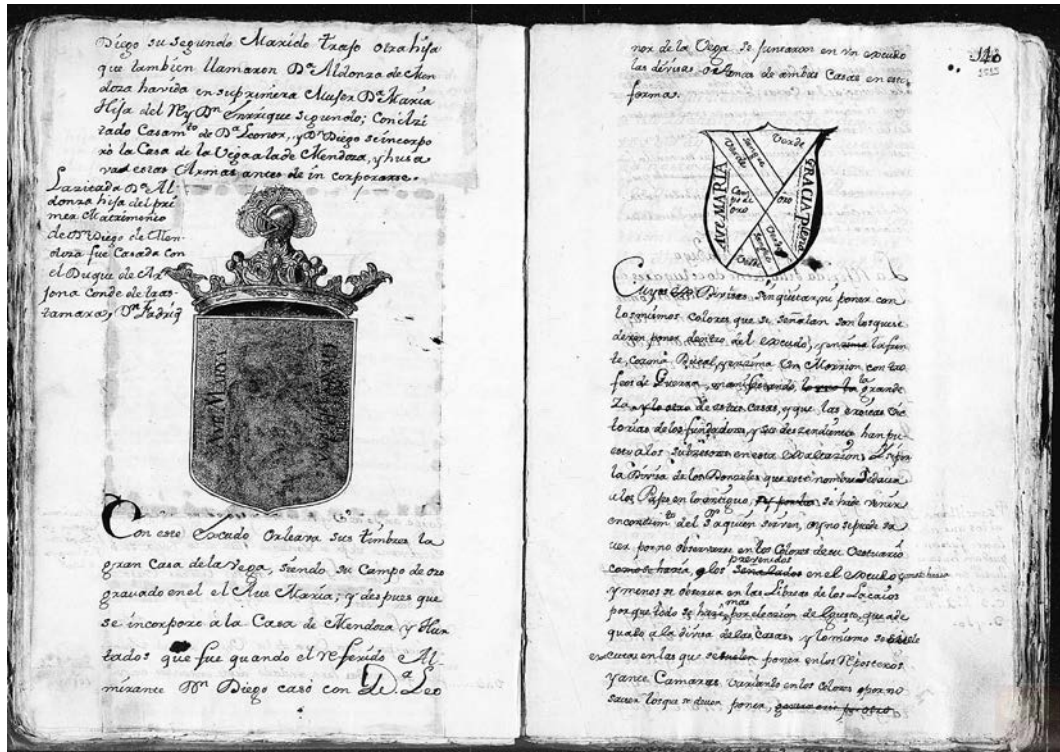 Diego su segundo Marido trajo otra hija
que tambien llamaron Dª Aldonza de Men
doza havida en su primera Muger Dª Maria
Hija del Rey Dn Enrrique segundo; Con el zi
tado Casamto de Dª Leonor, y Dn Diego se incorpo
rò la Casa de la Vega a la de Mendoza, y husa
va estas Armas antes de in corporarse.
La zitada Dª Al-
donza hija del pri
mer Matrimonio
de Dn Diego de Men-
doza fue Casada con
el Duque de Ar
jona Conde de tras-
tamara, Dn Fadriq
AVE MARYA
Con este Escudo Orleava sus timbres la
gran Casa de la Vega, siendo su Campo de oro
gravado en el el Ave Maria; y despues que
se incorporò à la Casa de Mendoza y Hur
tados que fue quando el referido Al-
mirante Dn Diego casò con Dª Leo
nor de la Vega se juntaron en un escudo
las devisas de ambas Casas en esta
forma.
Verde
Sangre
Verde
AVE MARIA
Campo de oro
oro
GRACIA Plena
Verde
Sangre
Verde
Cuyas Divisas sin quitar, ni poner con
los mismos Colores que se señalan son los que se
deven poner dentro del escudo, y en zima la fuen
te, Corona Ducal, y en zima Un Morrion con tro
feos de Guerra, manifestando la grande
za de estas Casas, y que las Ec
torias de los fundadores, y sus deszendientes han pu
esto a los subzesores en esta exaltazion,
la Divisa de los Donzeles que este nombre se dava
a los Pajes en lo antiguo, se hade venir
en contimto del Sr a quien sirven, si no se puede sa
ver por no observarse en los Colores de su Vestuario
como se havia, o los prevenidos en el escudo
y menos se observa en las Libreas de los Lacaios
por que todo se haze mas por eleczion de el gusto, que ade
quado a la divisa de las Casas, y lo mismo se
en las que se poner en los Reposteros
y ante Camaras variando en los colores o por no
saver los que se deven poner,